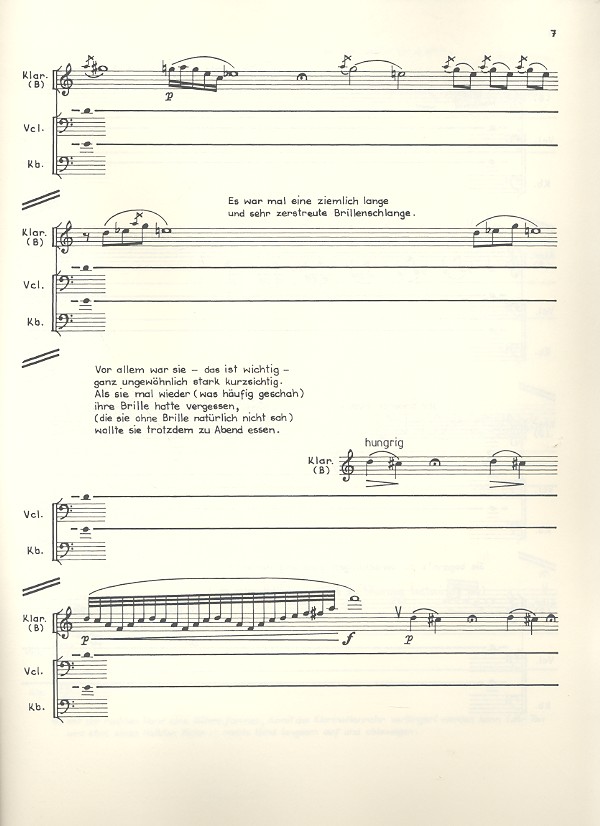 7
Klar.
(B)
p
Vcl.
Kb.
Es war mal eine ziemlich lange
und sehr zerstreute Brillenschlange.
Klar.
(B)
Vcl.
Kb.
Vor allem war sie – das ist wichtig –
ganz ungewöhnlich stark kurzsichtig.
Als sie mal wieder (was häufig geschah)
ihre Brille hatte vergessen,
(die sie ohne Brille natürlich nicht sah)
wollte sie trotzdem zu Abend essen.
hungrig
Klar.
(B)
Vcl.
Kb.
Klar.
(B)
p
f
p
Vcl.
Kb.